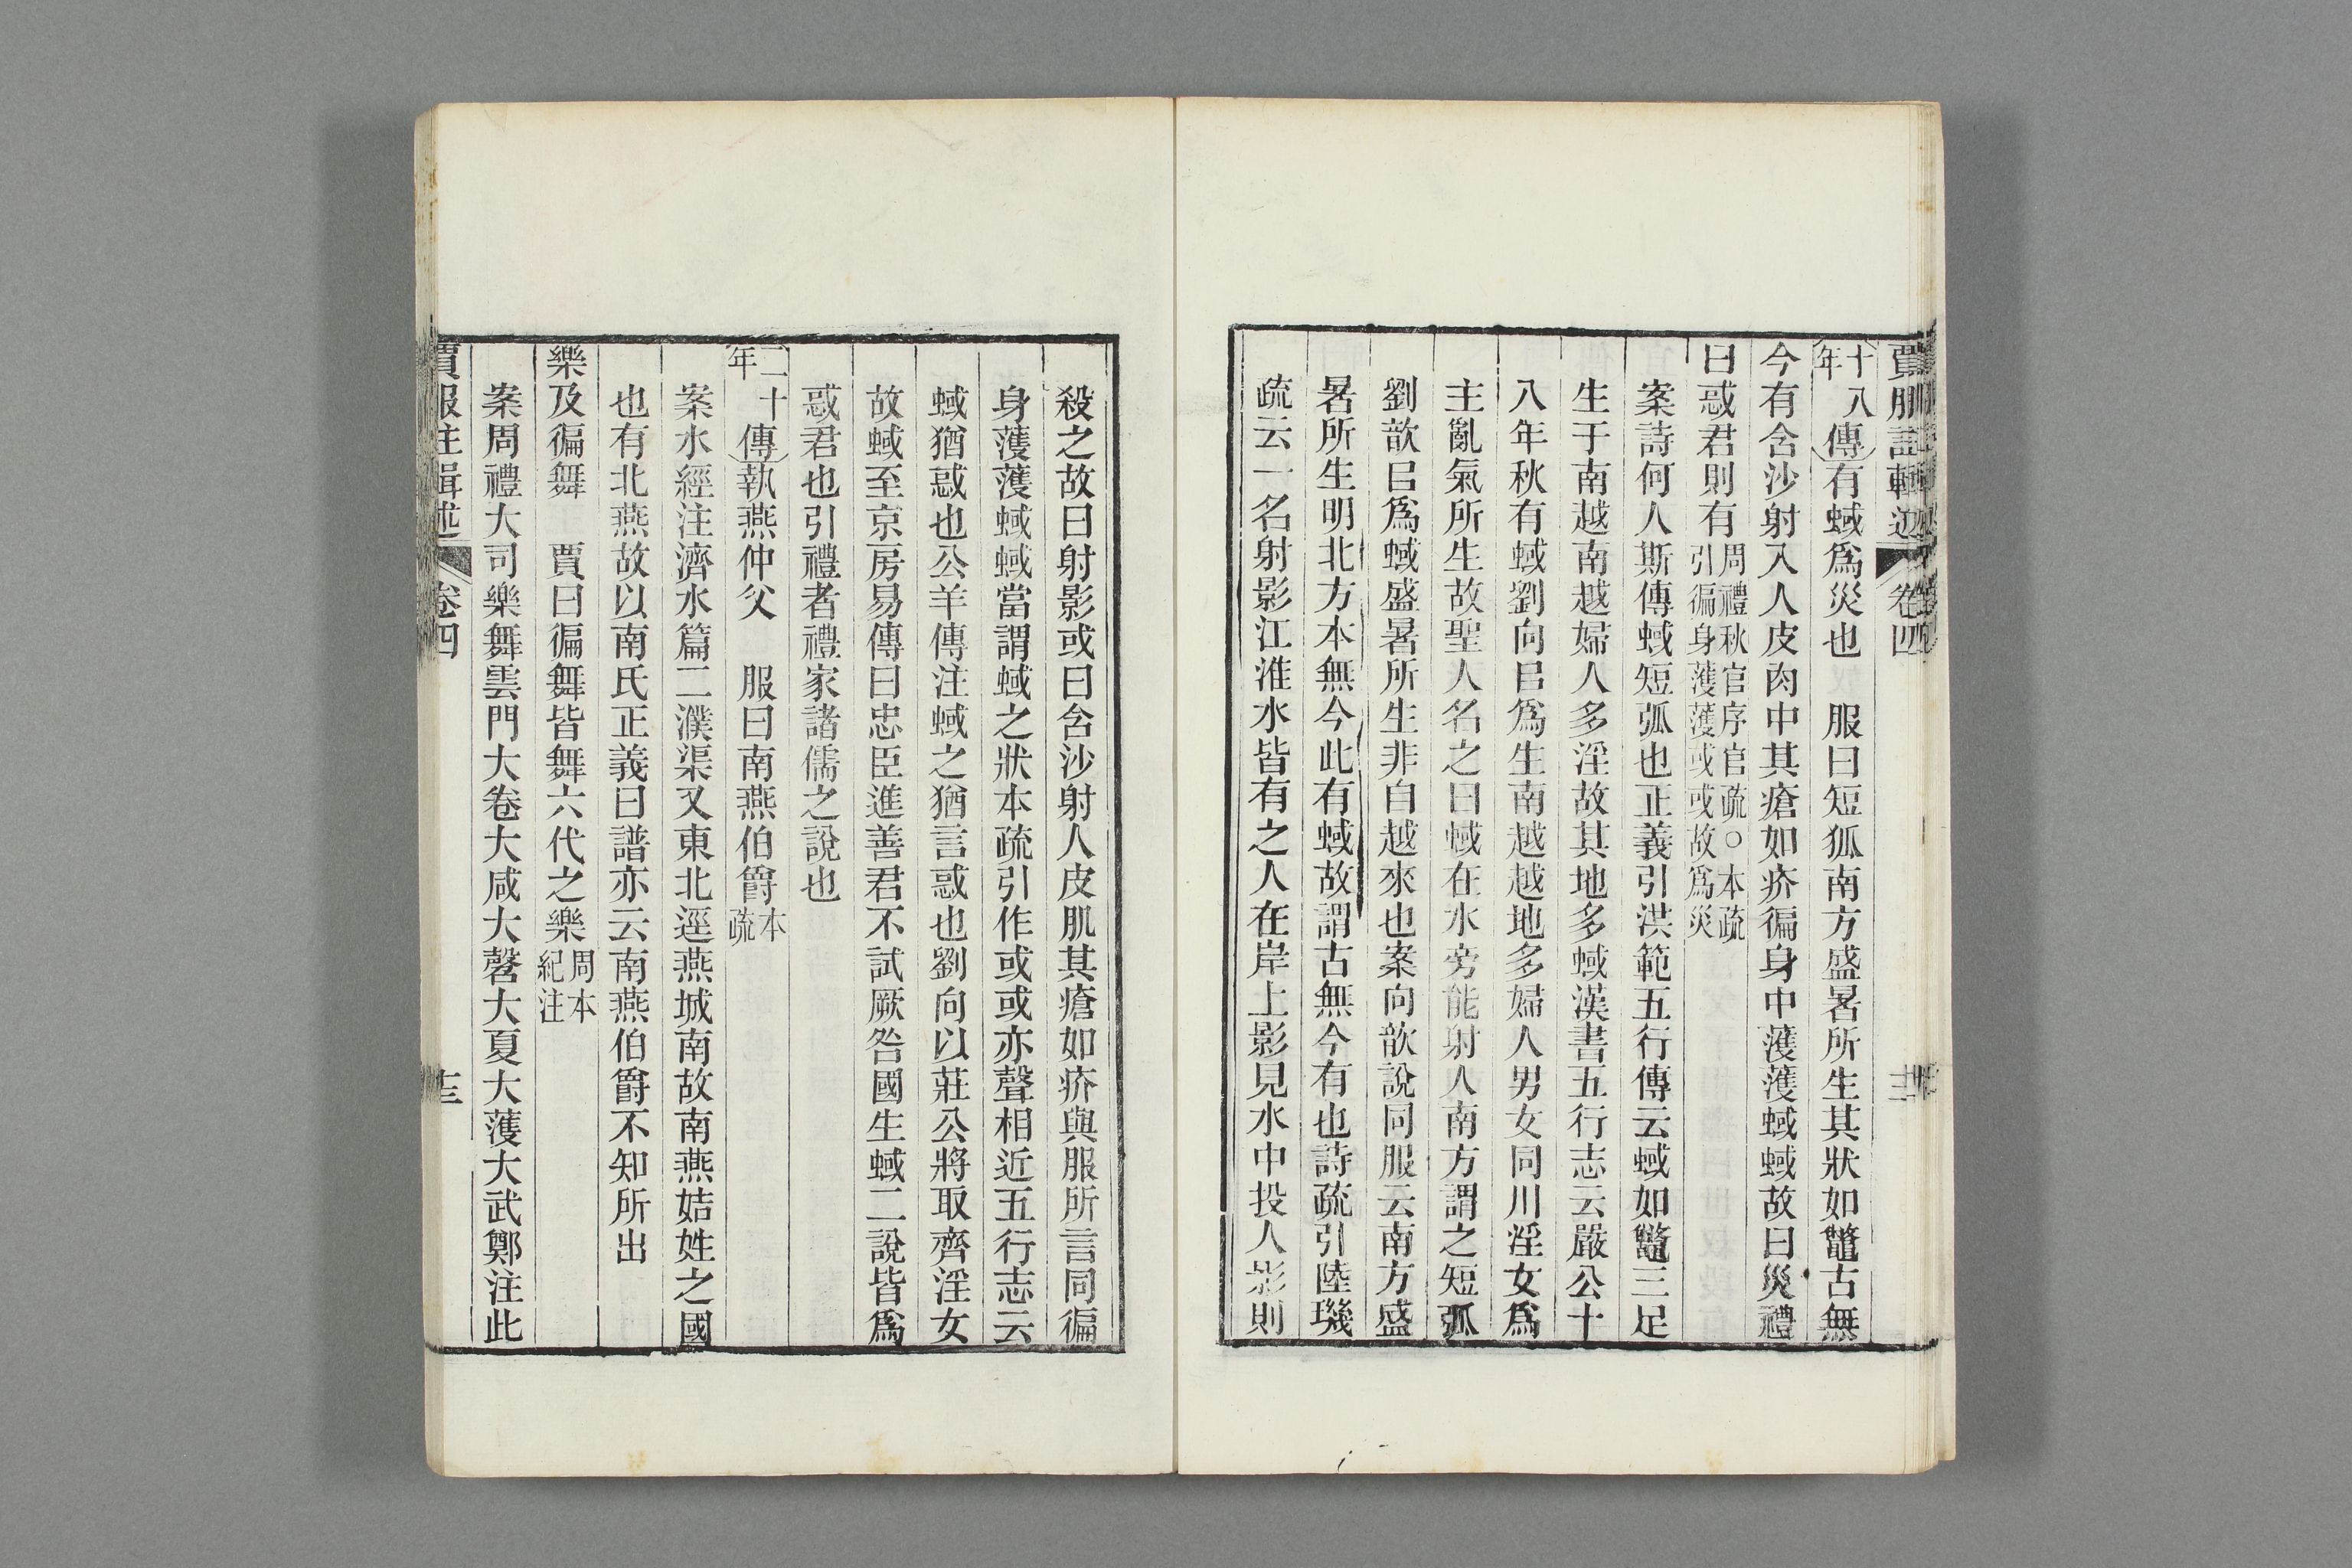 賈服註輯述 卷四 十二
十八年傳有蜮爲災也　服曰短狐南方盛暑所生其狀如鼈古無
今有含沙射入人皮肉中其瘡如疥徧身中濩濩蜮蜮故曰災禮
曰惑君則有周禮秋官序官疏○本疏引徧身濩濩或或故爲災
案詩何人斯傳蜮短弧也正義引洪範五行傳云蜮如鼈三足
生于南越南越婦人多淫故其地多蜮漢書五行志云嚴公十
八年秋有蜮劉向㠯爲生南越越地多婦人男女同川淫女爲
主亂氣所生故聖人名之曰蜮在水旁能射人南方謂之短弧
劉歆㠯爲蜮盛暑所生非自越來也案向歆說同服云南方盛
暑所生明北方本無今此有蜮故謂古無今有也詩疏引陸璣
疏云一名射影江淮水皆有之人在岸上影見水中投人影則
殺之故曰射影或曰含沙射人皮肌其瘡如疥與服所言同徧
身濩濩蜮蜮當謂蜮之狀本疏引作或或亦聲相近五行志云
蜮猶惑也公羊傳注蜮之猶言惑也劉向以莊公將取齊淫女
故蜮至京房易傳曰忠臣進善君不試厥咎國生蜮二說皆爲
惑君也引禮者禮家諸儒之說也
二十年傳執燕仲父　服曰南燕伯爵本疏
案水經注濟水篇二濮渠又東北逕燕城南故南燕姞姓之國
也有北燕故以南氏正義曰譜亦云南燕伯爵不知所出
樂及徧舞　賈曰徧舞皆舞六代之樂周本紀注
案周禮大司樂舞雲門大卷大咸大磬大夏大濩大武鄭注此
賈服注輯述 卷四 十三